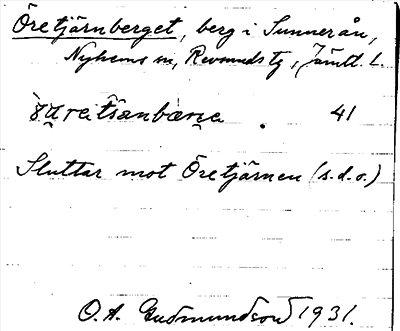 Öretjärnberget, berg i Sunnerån,
Nyhems sn, Revsunds tg, Jämtl. l.
41
Sluttar mot Öretjärnen (s.d.o.)
O. A. Gudmundson 1931.